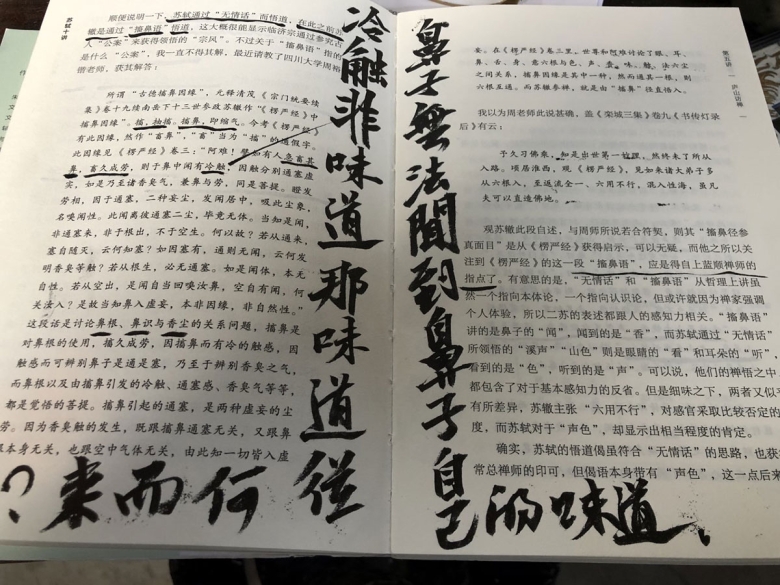 苏轼十讲
顺便说明一下，苏轼通过“无情话”而悟道，在此之前苏
辙是通过“搐鼻语”悟道，这大概很能显示临济宗通过参究古
人“公案”来获得领悟的“宗风”。不过关于“搐鼻语”指的
是什么“公案”，我一直不得其解，最近请教了四川大学周裕
锴老师，获其解答：
所谓“古德搐鼻因缘”，元释清茂《宗门统要续
集》卷十九续南岳下十三世参政苏辙作“《楞严经》中
搐鼻因缘”。搐，抽搐。搐鼻，即缩气。今考《楞严经》
有此因缘，然作“畜鼻”，“畜”当为“搐”的通假字。
此因缘见《楞严经》卷三：“阿难！譬如有人急畜其
鼻，畜久成劳，则于鼻中闻有冷触，因触分别通塞虚
实，如是乃至诸香臭气，兼鼻与劳，同是菩提。瞪发
劳相，因于通塞，二种妄尘，发闻居中，吸此尘象，
名嗅闻性。此闻离彼通塞二尘，毕竟无体。当知是闻，
非通塞来，非于根出，不于空生。何以故？若从通来，
塞自随灭，云何知塞？如因塞有，通则无闻，云何发
明香臭等触？若从根生，必无通塞。如是闻体，本无
自性。若从空出，是闻自当回嗅汝鼻，空自有闻，何
关汝入？是故当知鼻入虚妄，本非因缘，非自然性。”
这段话是讨论鼻根、鼻识与香尘的关系问题，搐鼻是
对鼻根的使用，搐久成劳，因搐鼻而有冷的触感，因
触感而可辨别鼻子是通是塞，乃至于辨别香臭之气，
而鼻根以及由搐鼻引发的冷触、通塞感、香臭气等等，
都是觉悟的菩提。搐鼻引起的通塞，是两种虚妄的尘
劳。因为香臭触的发生，既跟搐鼻通塞无关，又跟鼻
根本身无关，也跟空中气体无关，由此知一切皆入虚
冷触非味道那味道从
何而来？
第五讲 庐山访禅
妄。在《楞严经》卷三里，世尊和阿难讨论了眼、耳、
鼻、舌、身、意六根与色、声、香、味、触、法六尘
之间关系，搐鼻因缘是其中一种，然而通其一根，则
六根互通。而苏辙参禅，就是由“搐鼻”径直悟入。
我以为周老师此说甚确，盖《栾城三集》卷九《书传灯录
后》有云：
予久习佛乘，知是出世第一妙理，然终未了所从
入路。顷居淮西，观《楞严经》，见如来诸大弟子多
从六根入，至返流全一，六用不行，混入性海，虽凡
夫可以直造佛地。
观苏辙此段自述，与周师所说若合符契，则其“搐鼻径参
真面目”是从《楞严经》获得启示，可以无疑，而他之所以关
注到《楞严经》的这一段“搐鼻语”，应是得自上蓝顺禅师的
指点了。有意思的是，“无情话”和“搐鼻语”从哲理上讲虽
然一个指向本体论，一个指向认识论，但或许就因为禅家强调
个人体验，所以二苏的表述都跟人的感知力相关。“搐鼻语”
讲的是鼻子的“闻”，闻到的是“香”，而苏轼通过“无情话”
所领悟的“溪声”“山色”则是眼睛的“看”和耳朵的“听”，
看到的是“色”，听到的是“声”。可以说，他们的禅悟之中
都包含了对于基本感知力的反省。但是细味之下，两者又似乎
有所差异，苏辙主张“六用不行”，对感官采取比较否定的
度，而苏轼对于“声色”，却显示出相当程度的肯定。
确实，苏轼的悟道偈虽符合“无情话”的思路，也获
常总禅师的印可，但偈语本身带有“声色”，这一点后来
鼻子無法聞到鼻子自己
的味道、